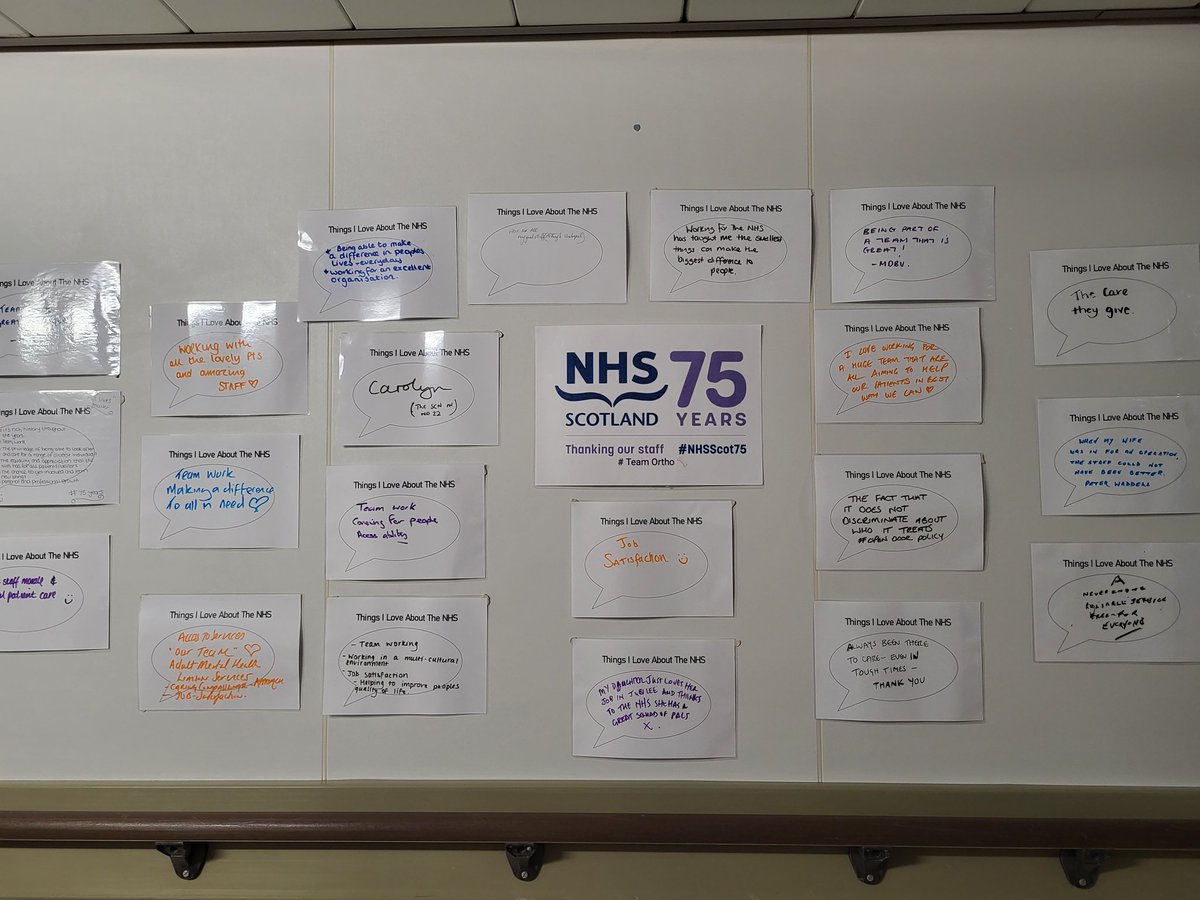 Things I Love About The NHS
* Being able to make
a difference in peoples
Lives - everyday
* Working for an excellent
organisation.
Things I Love About The NHS
Things I Love About The NHS
Working for the NHS
has taught me the smallest
things can make the
biggest difference to
people.
Things I Love About The NHS
BEING PART OF
A TEAM THAT IS
GREAT!
- MDBU.
Things I Love About The NHS
The Care
they give.
I Love About The NHS
Things I Love About The NHS
Working with
all the lovely pts
and amazing
STAFF ♡
Things I Love About The NHS
Carolyn
(The SCN in
NHS
SCOTLAND
75
YEARS
Thanking our staff #NHSScot75
# Team Ortho
Things I Love About The NHS
I LOVE WORKING FOR
A HUGE TEAM THAT ARE
ALL AIMING TO HELP
OUR PATIENTS IN BEST
WAY WE CAN ♡
Things I Love About The NHS
WHEN MY WIFE
WAS IN FOR AN OPERATION,
THE STAFF COULD NOT
HAVE BEEN BETTER.
PETER WADDELL
I Love About The NHS
Things I Love About The NHS
Team work
Making a difference
To all in need ♡
Things I Love About The NHS
Team work
Caring for people
Access ability
Things I Love About The NHS
Job
Satisfaction
Things I Love About The NHS
THE FACT THAT
IT DOES NOT
DISCRIMINATE ABOUT
WHO IT TREATS
#OPEN DOOR POLICY
Things I Love About The NHS
A
RELIABLE SERVICE
FREE-FOR
EVERYONE
I Love About The NHS
staff morale &
patient care
Things I Love About The NHS
Access To Services
"Our TEAM" ♡
Adult Mental Health
Services
- JOB-Satisfaction.
Things I Love About The NHS
- Team working
- Working in a multi-cultural
environment
- Job satisfaction
- Helping to improve peoples
quality of life.
Things I Love About The NHS
MY DAUGHTER JUST LOVES HER
JOB IN JUBILEE AND THINKS
TO THE NHS SHE HAS A
GREAT SQUAD OF PALS
X.
Things I Love About The NHS
ALWAYS BEEN THERE
TO CARE - EVEN IN
TOUGH TIMES -
THANK YOU